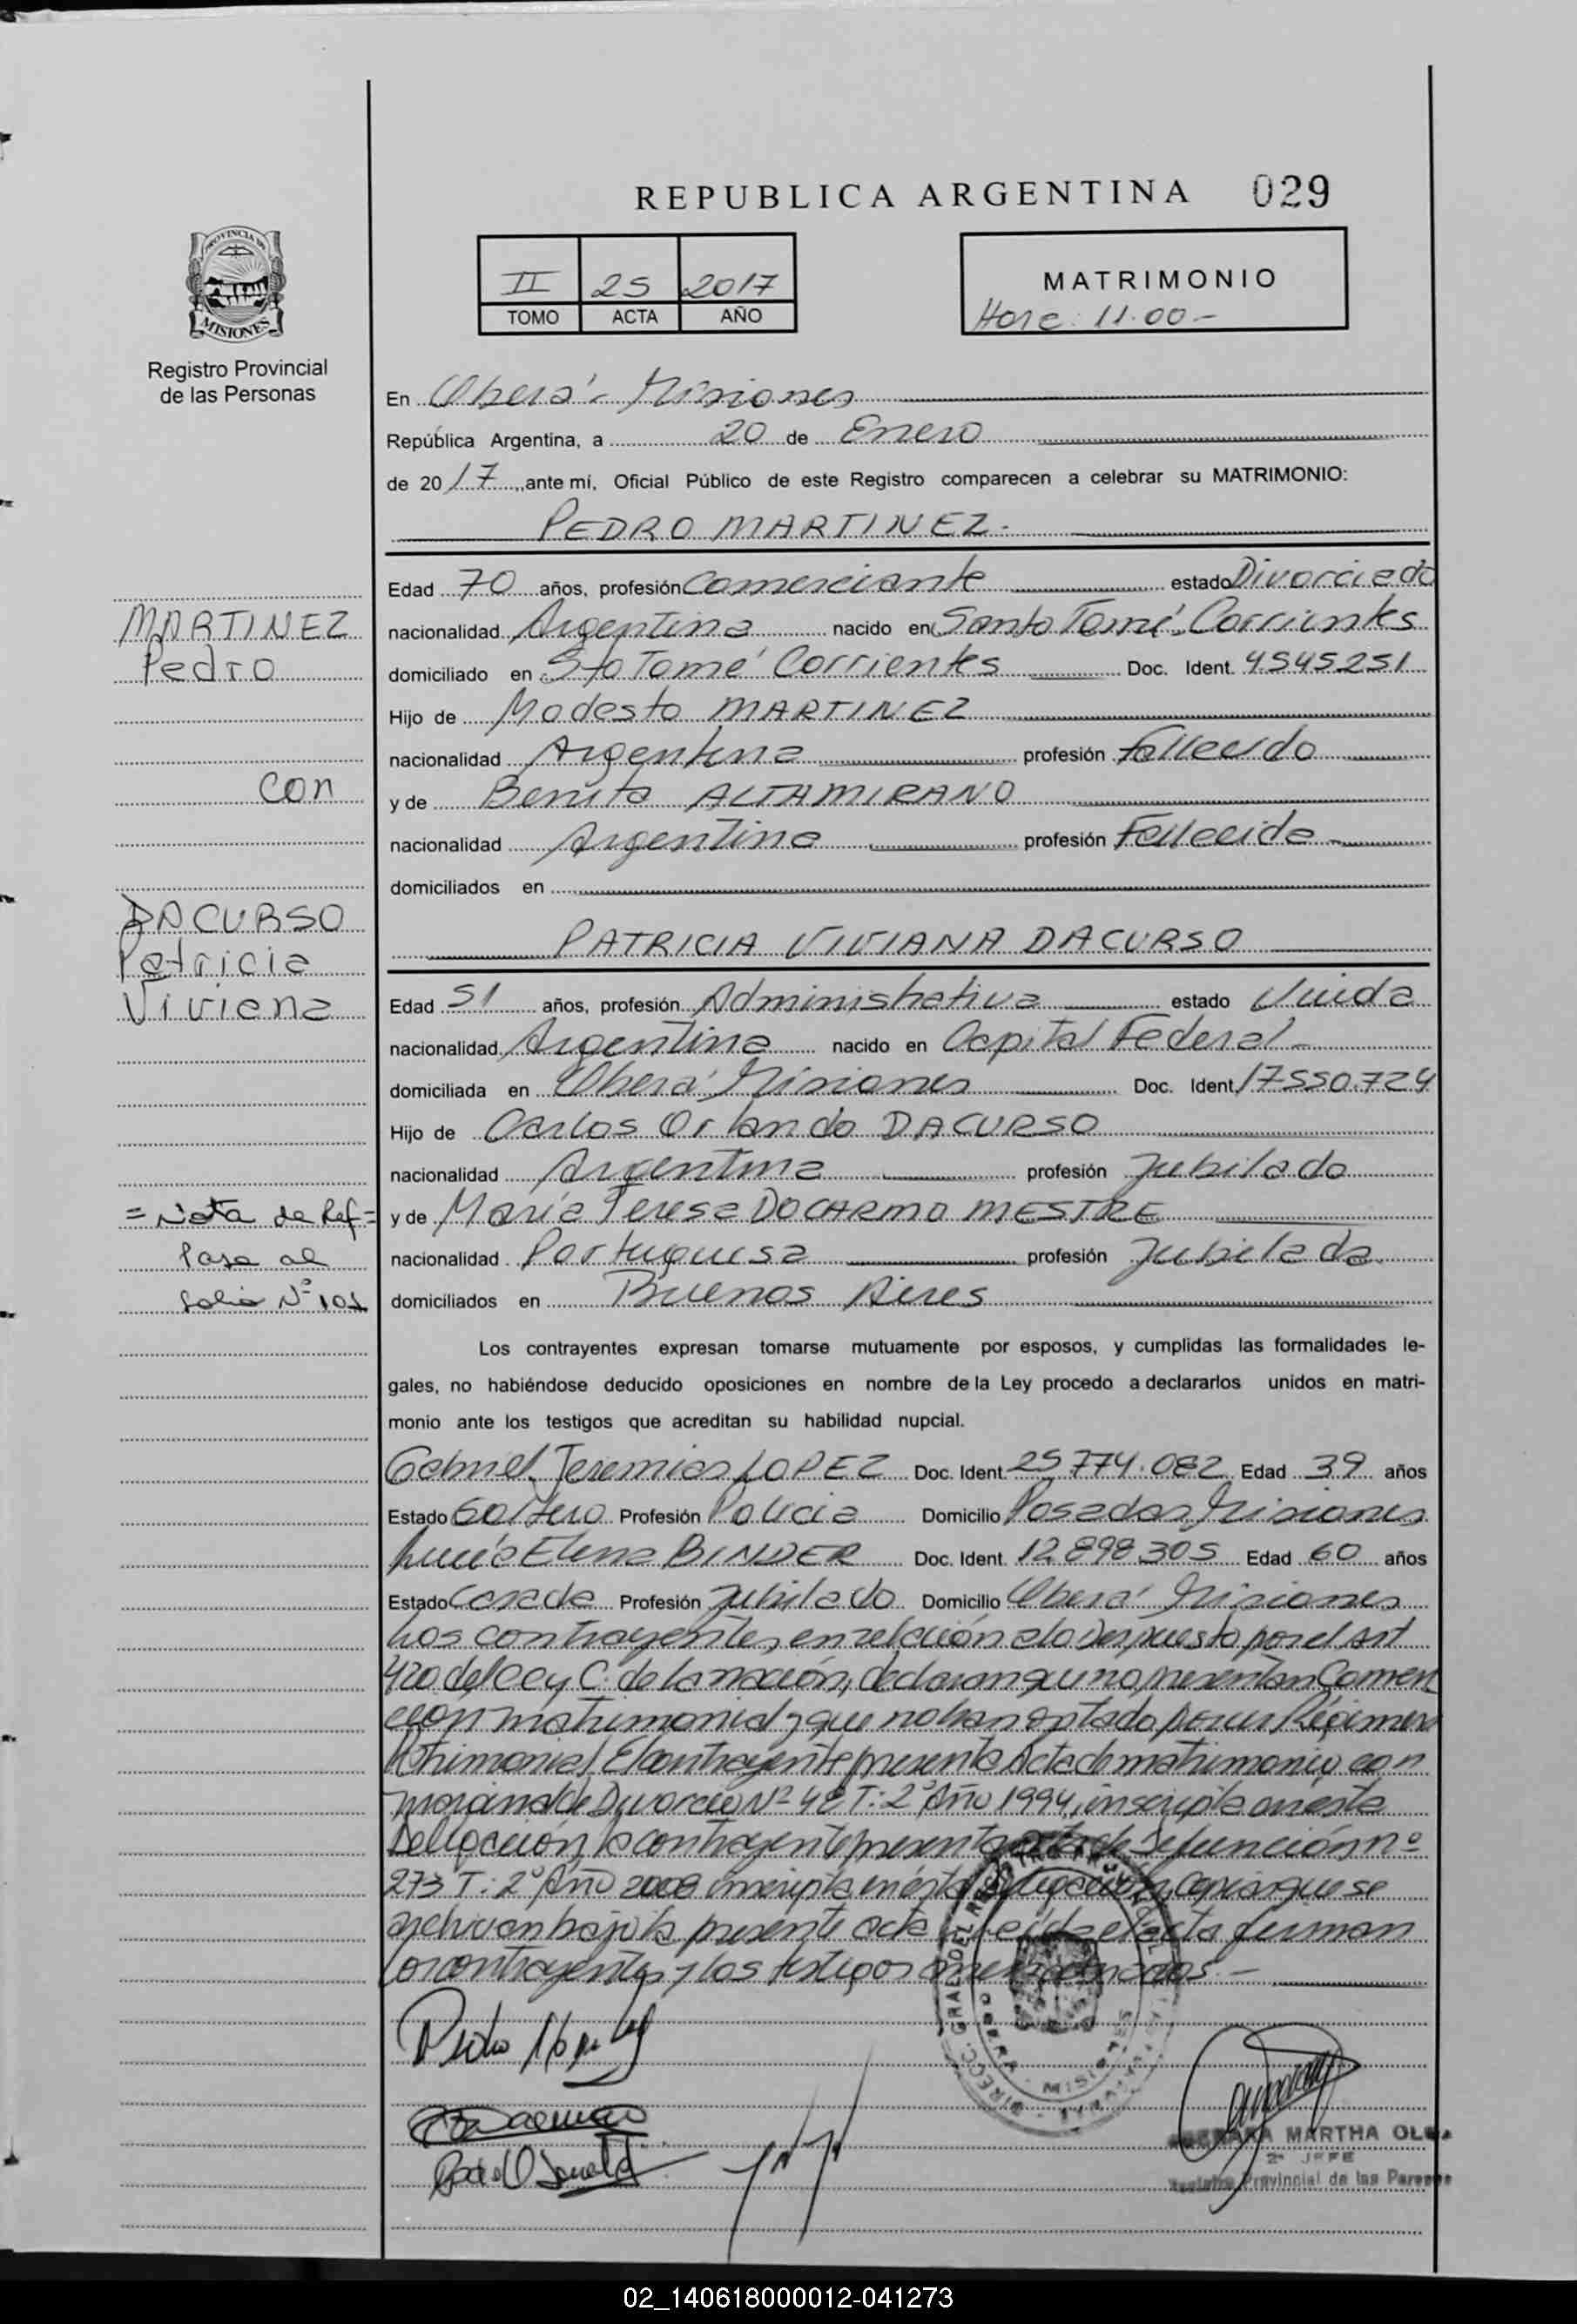 REPUBLICA ARGENTINA 029
PROVINCIA DE
MISIONES
Registro Provincial
de las Personas
II 25 2017
TOMO ACTA AÑO
MATRIMONIO
Hora: 11.00-
En Oberá - Misiones
República Argentina, a 20 de Enero
de 2017, ante mí, Oficial Público de este Registro comparecen a celebrar su MATRIMONIO:
PEDRO MARTINEZ.
Edad 70 años, profesión Comerciante estado Divorciado
nacionalidad Argentina nacido en Santo Tomé. Corrientes
domiciliado en Sto Tomé Corrientes Doc. Ident. 4545251
Hijo de Modesto MARTINEZ
nacionalidad Argentina profesión Fallecido
y de Benita ALTAMIRANO
nacionalidad Argentina profesión Fallecida
domiciliados en
PATRICIA VIVIANA DACURSO
Edad 51 años, profesión Administrativa estado Viuda
nacionalidad Argentina nacido en Capital Federal
domiciliada en Oberá Misiones Doc. Ident. 17550.724
Hijo de Carlos Orlando DACURSO
nacionalidad Argentina profesión Jubilado
y de María Teresa DOCARMO MESTRE
nacionalidad Portuguesa profesión Jubilada
domiciliados en Buenos Aires
MARTINEZ
Pedro
con
DACURSO
Patricia
Viviana
= Nota de Ref =
Pasa al
folio Nº 101
Los contrayentes expresan tomarse mutuamente por esposos, y cumplidas las formalidades le-
gales, no habiéndose deducido oposiciones en nombre de la Ley procedo a declararlos unidos en matri-
monio ante los testigos que acreditan su habilidad nupcial.
Gabriel Jeremias LOPEZ Doc. Ident. 25.774.082 Edad 39 años
Estado Soltero Profesión Policia Domicilio Posadas Misiones
Lucía Elena BINDER Doc. Ident. 12.898.305 Edad 60 años
Estado Casada Profesión Jubilado Domicilio Oberá Misiones
Los contrayentes, en relación a lo dispuesto por el Art
420 del C C y C. de la nación, declaran que no presentan Conven
cion matrimonial y que no han optado por un Régimen
Patrimonial El contrayente presenta Acta de matrimonio con
marginal de Divorcio Nº 48 T: 2º Año 1994, inscripta en esta
Delegación, la contrayente presenta acta de Defunción nº
273 T: 2º Año 2008 inscripta en esta Delegación, Copias que se
archivan bajo la presente acta Leída el acta firman
los contrayentes y los testigos mencionados.-
DIRECC. GRAL. DEL REGISTRO PROVINCIAL
OBERA - MISIONES
MARTHA OLGA
2º JEFE
Registro Provincial de las Personas
02_140618000012-041273